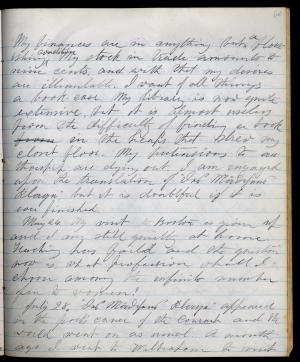 My finances are in anything but a flour-
ishing condition. My stock in trade amounts to
nine cents, and with that my desires
are illimitable. I want of all things
a book case. My library is now quite
extensive, but it is almost useless
from the difficulty of finding a book
in the heaps that strew my
closet floor. My pretensions to au-
thorship are dying out. I am engaged
upon the translation of
but it is doubtful if it is
ever finished.
May 24. My visit to Boston is given up
and I am still quietly at home.
Teaching has failed and the question
now is what profession shall I
choose among the infinite number
open to women?
July 28. appeared
in the poet's corner of the Courant and the
world went on as usual. A month
ago I went to Waltham to visit